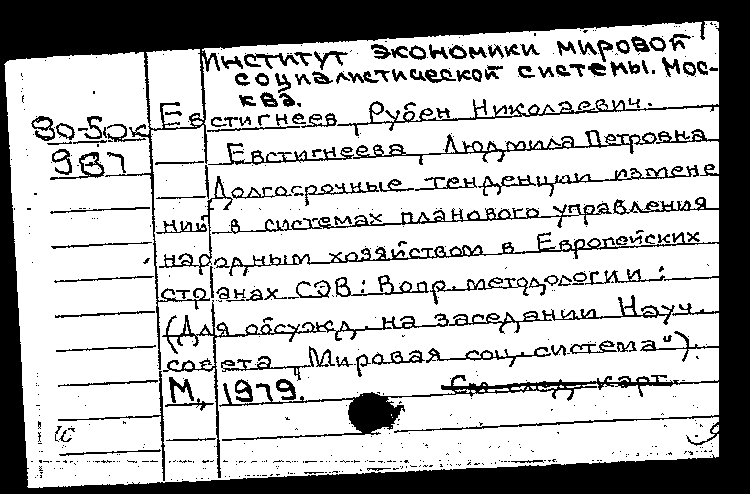 Институт экономики мировой
социалистической системы. Мос-
ква.
80-50к Евстигнеев, Рубен Николаевич.
987 Евстигнеева, Людмила Петровна
Долгосрочные тенденции измене
ний в системах планового управления
народным хозяйством в Европейских
странах СЭВ: Вопр. методологии:
(Для обсужд. на заседании Науч.
совета "Мировая соц. система").
М., 1979. См. след. карт.